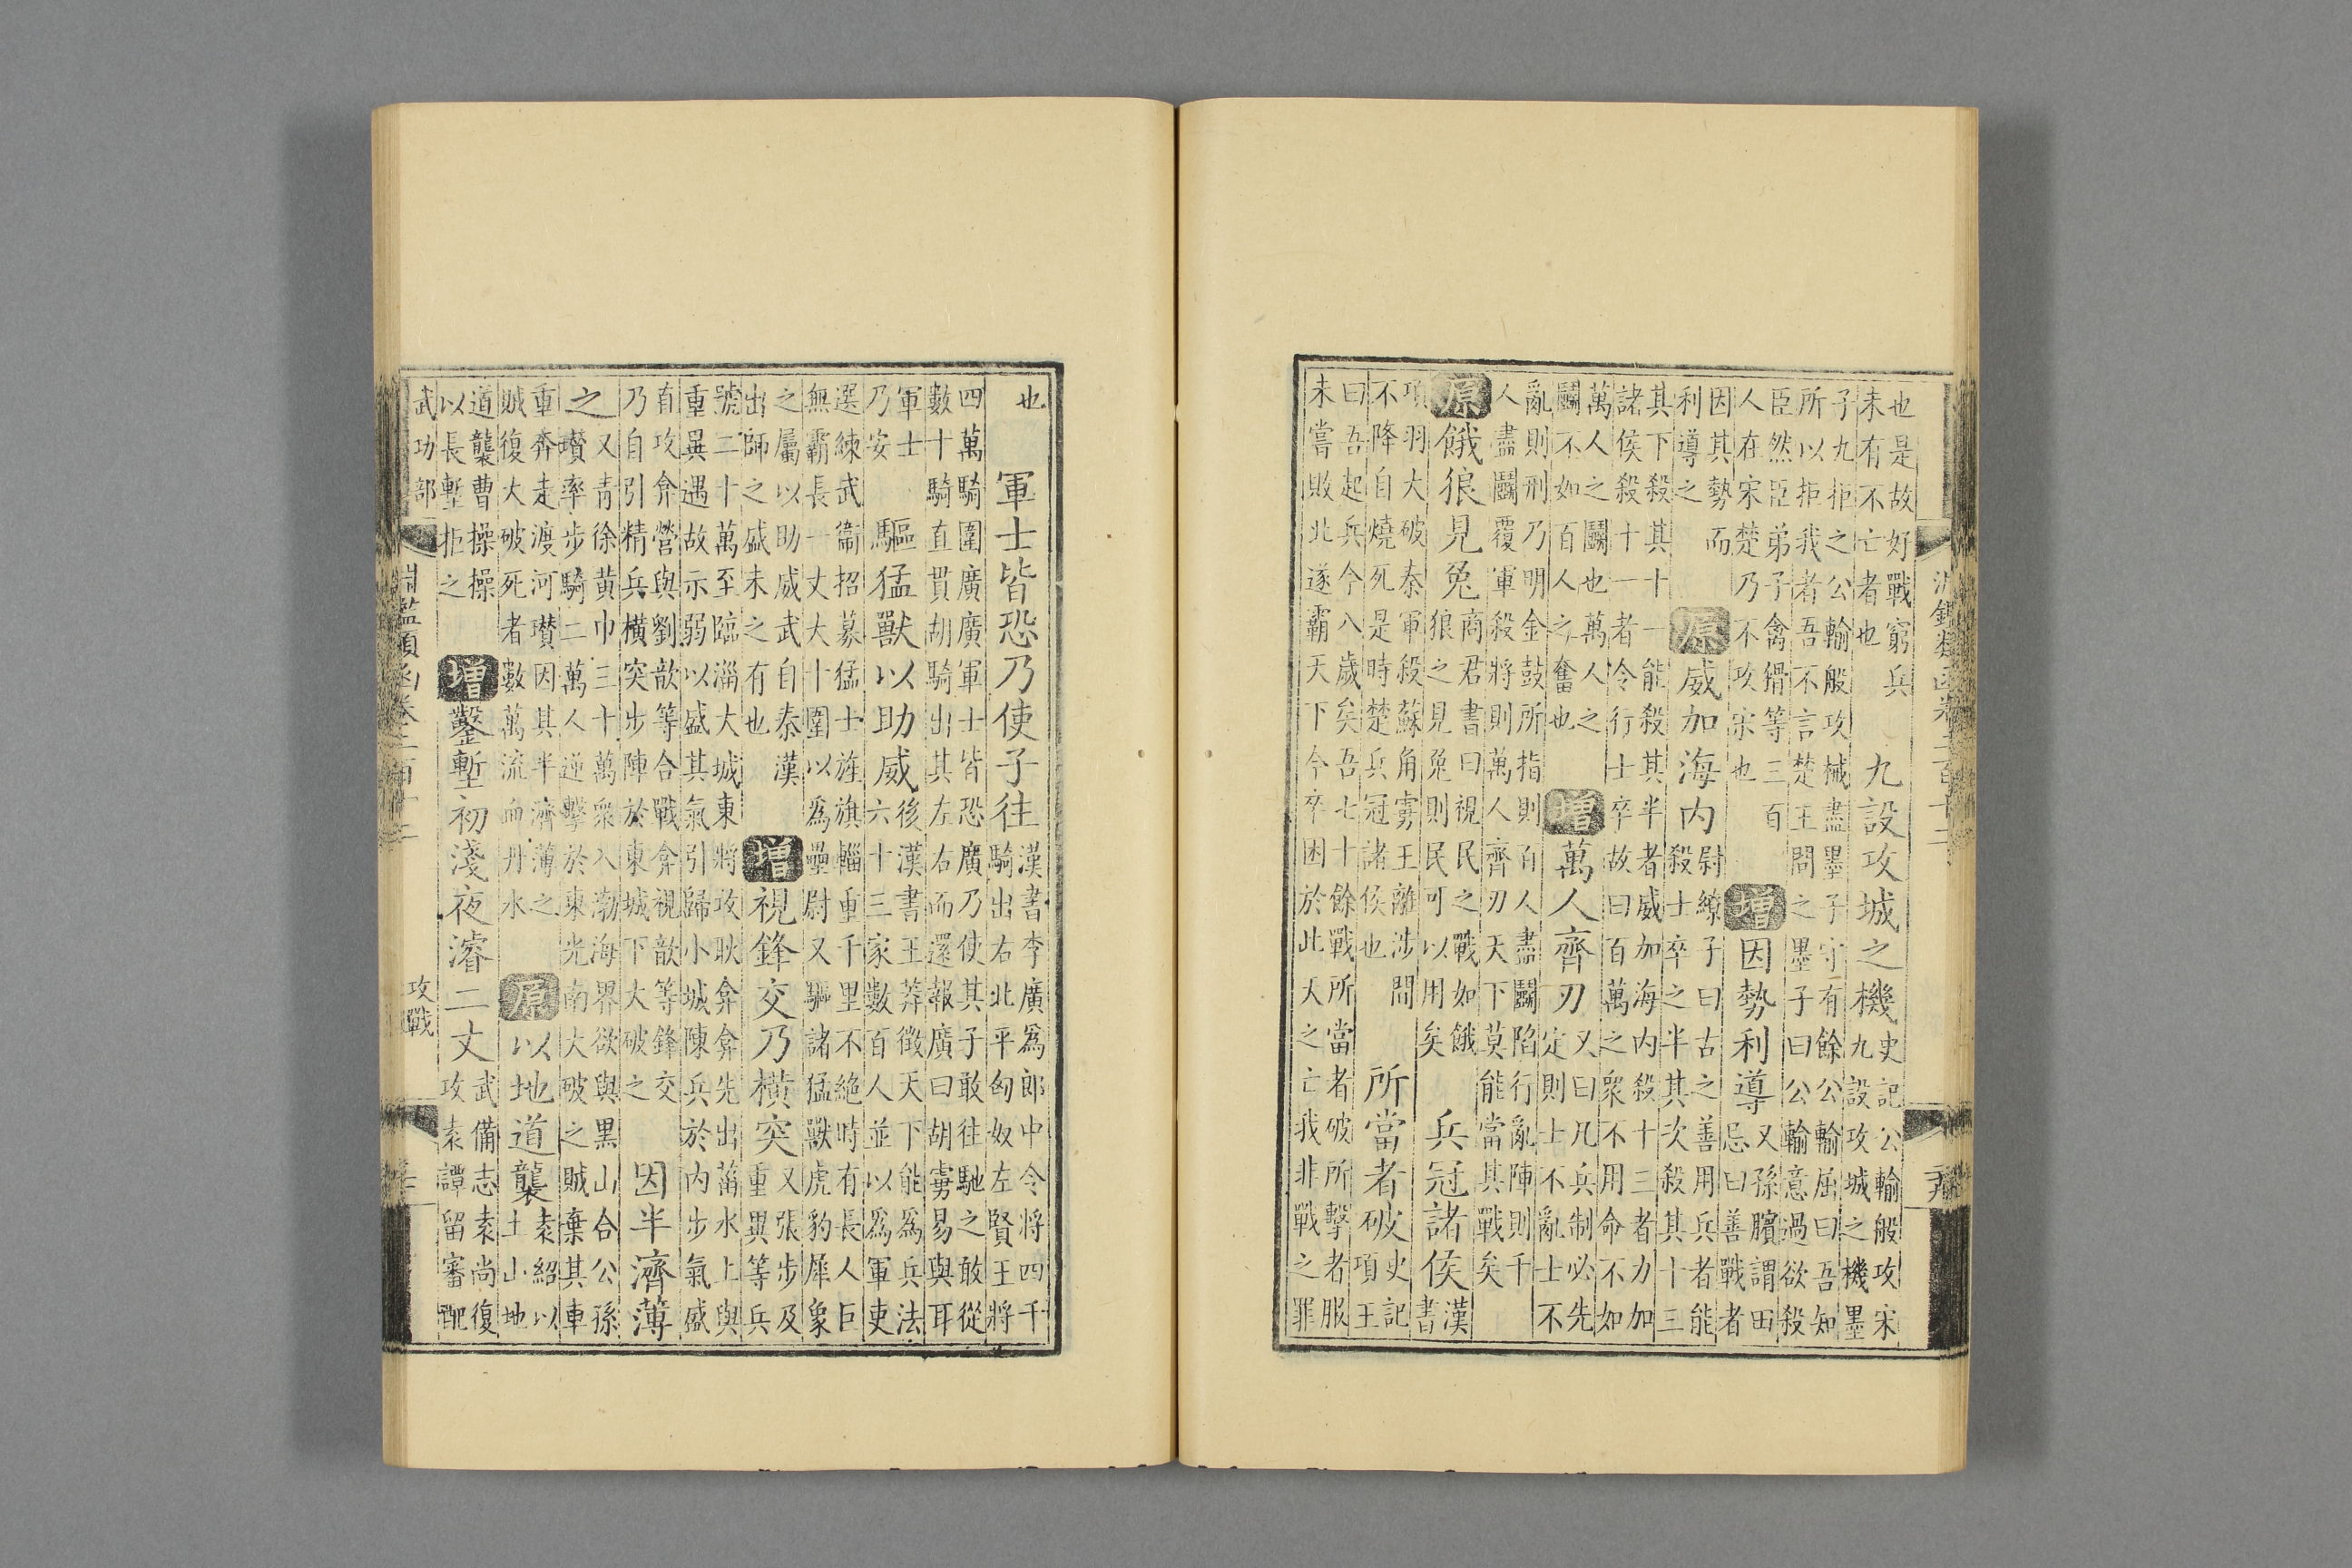 也是故好戰窮兵未有不亡者也　九設攻城之機史記公輸般攻宋九設攻城之機墨
子九拒之公輸般攻械盡墨子守有餘公輸屈曰吾知所以拒我者吾不言楚王問之墨子曰公輸意過欲殺
臣然臣弟子禽猾等三百人在宋楚乃不攻宋也 增 因勢利導又孫臏謂田忌曰善戰者
因其勢而利導之 原 威加海內尉繚子曰古之善用兵者能殺士卒之半其次殺其十三
其下殺其十一能殺其半者威加海內殺十三者力加諸侯殺十一者令行士卒故曰百萬之眾不用命不如
萬人之鬭也萬人之鬭不如百人之奮也 增 萬人齊刃又曰凡兵制必先定則士不亂士不
亂則刑乃明金鼓所指則百人盡鬭陷行亂陣則千人盡鬭覆軍殺將則萬人齊刃天下莫能當其戰矣
原 餓狼見兔商君書曰視民之戰如餓狼之見兔則民可以用矣　兵冠諸侯漢書
項羽大破秦軍殺蘇角虜王離涉間不降自燒死是時楚兵冠諸侯也　所當者破史記項王
曰吾起兵今八歲矣吾七十餘戰所當者破所擊者服未嘗敗北遂霸天下今卒困於此天之亡我非戰之罪
也　軍士皆恐乃使子往漢書李廣為郎中令將四千騎出右北平匈奴左賢王將
四萬騎圍廣廣軍士皆恐廣乃使其子敢往馳之敢從數十騎直貫胡騎出其左右而還報廣曰胡虜易與耳
軍士乃安　驅猛獸以助威後漢書王莽徵天下能為兵法六十三家數百人並以為軍吏
選練武衞招募猛士旌旗輜重千里不絕時有長人巨無霸長一丈大十圍以為壘尉又驅諸猛獸虎豹犀象
之屬以助威武自秦漢出師之盛未之有也 增 視鋒交乃橫突又張步及重異等兵
號二十萬至臨淄大城東將攻耿弇弇先出菑水上與重異遇故示弱以盛其氣引歸小城陳兵於內步氣盛
直攻弇營與劉歆等合戰弇視歆等鋒交乃自引精兵橫突步陣於東城下大破之　因半濟薄
之又青徐黃巾三十萬衆入渤海界欲與黑山合公孫瓚率步騎二萬人逆擊於東光南大破之賊棄其車
重奔走渡河瓚因其半濟薄之賊復大破死者數萬流血丹水 原 以地道襲袁紹以土山地
道襲曹操操以長塹拒之 增 鑿塹初淺夜濬二丈武備志袁尚復攻袁譚留審配
武功部　攻戰